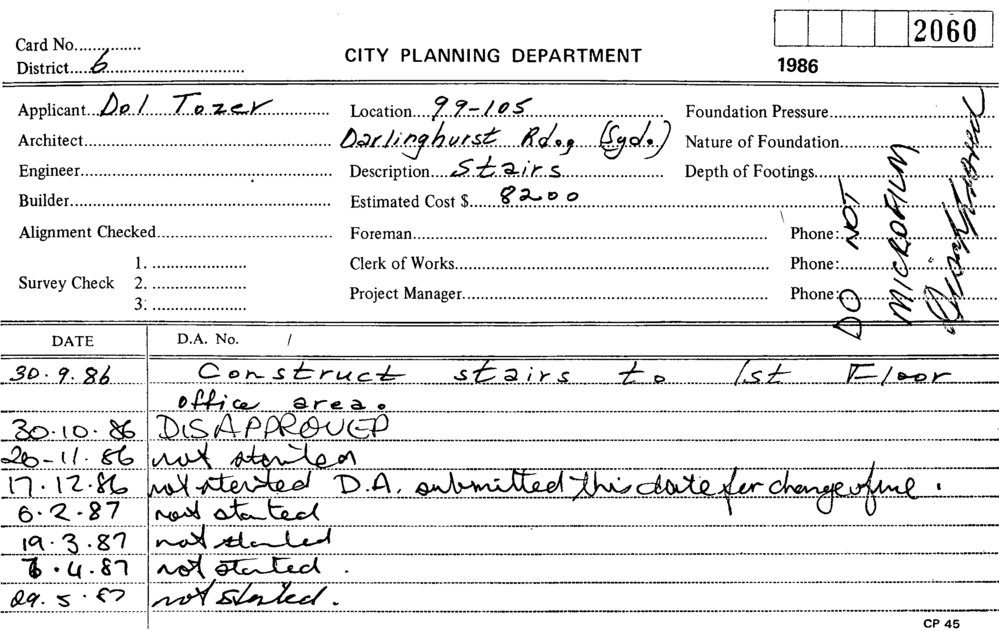 2060
Card No...............
CITY PLANNING DEPARTMENT
1986
District....6
Applicant...Dol Tozer
Location...99-105
Foundation Pressure
Architect
Darlinghurst Rd., (Syd.)
Nature of Foundation
Engineer
Description...Stairs
Depth of Footings
Builder
Estimated Cost $......8200
Alignment Checked
Foreman
Phone:
Survey Check
1.
2.
3.
Clerk of Works
Phone:
Project Manager
Phone:
DO NOT
MICROFILM
DATE
D.A. No. /
30.9.86 Construct stairs to 1st Floor
office area.
30.10.86 DISAPPROVED
20-11.86 not started
17.12.86 not started D.A. submitted this date for change of use.
6.2.87 not started
19.3.87 not started
6.4.87 not started.
29.5.87 not started.
CP 45